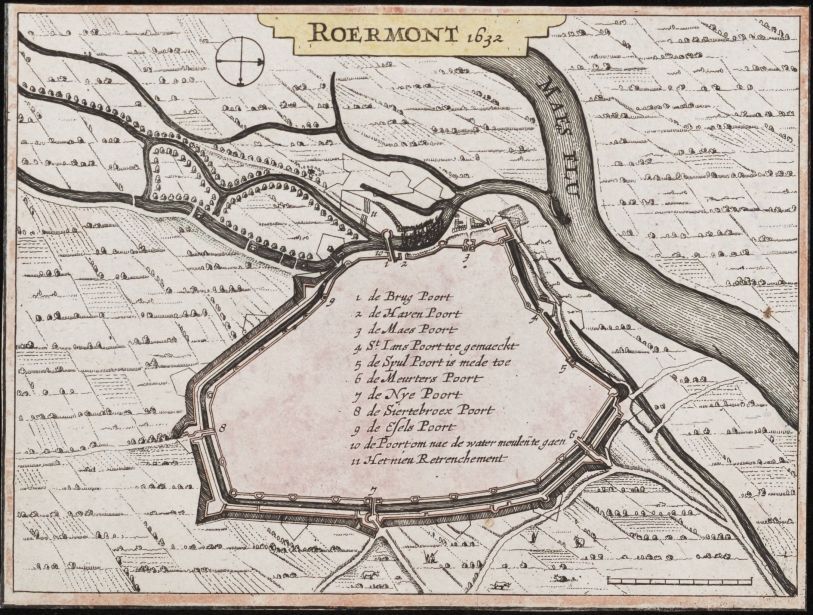 ROERMONT 1632
MAES FLU
1 de Brug Poort
2 de Haven Poort
3 de Maes Poort
4 St Ians Poort toe gemaeckt
5 de Spul Poort is mede toe
6 de Meurters Poort
7 de Nye Poort
8 de Siertebroex Poort
9 de Esels Poort
10 de Poort om nae de water meulen te gaen
11 Het nieu Retrenchement
11
10
1
2
3
9
4
5
8
6
7